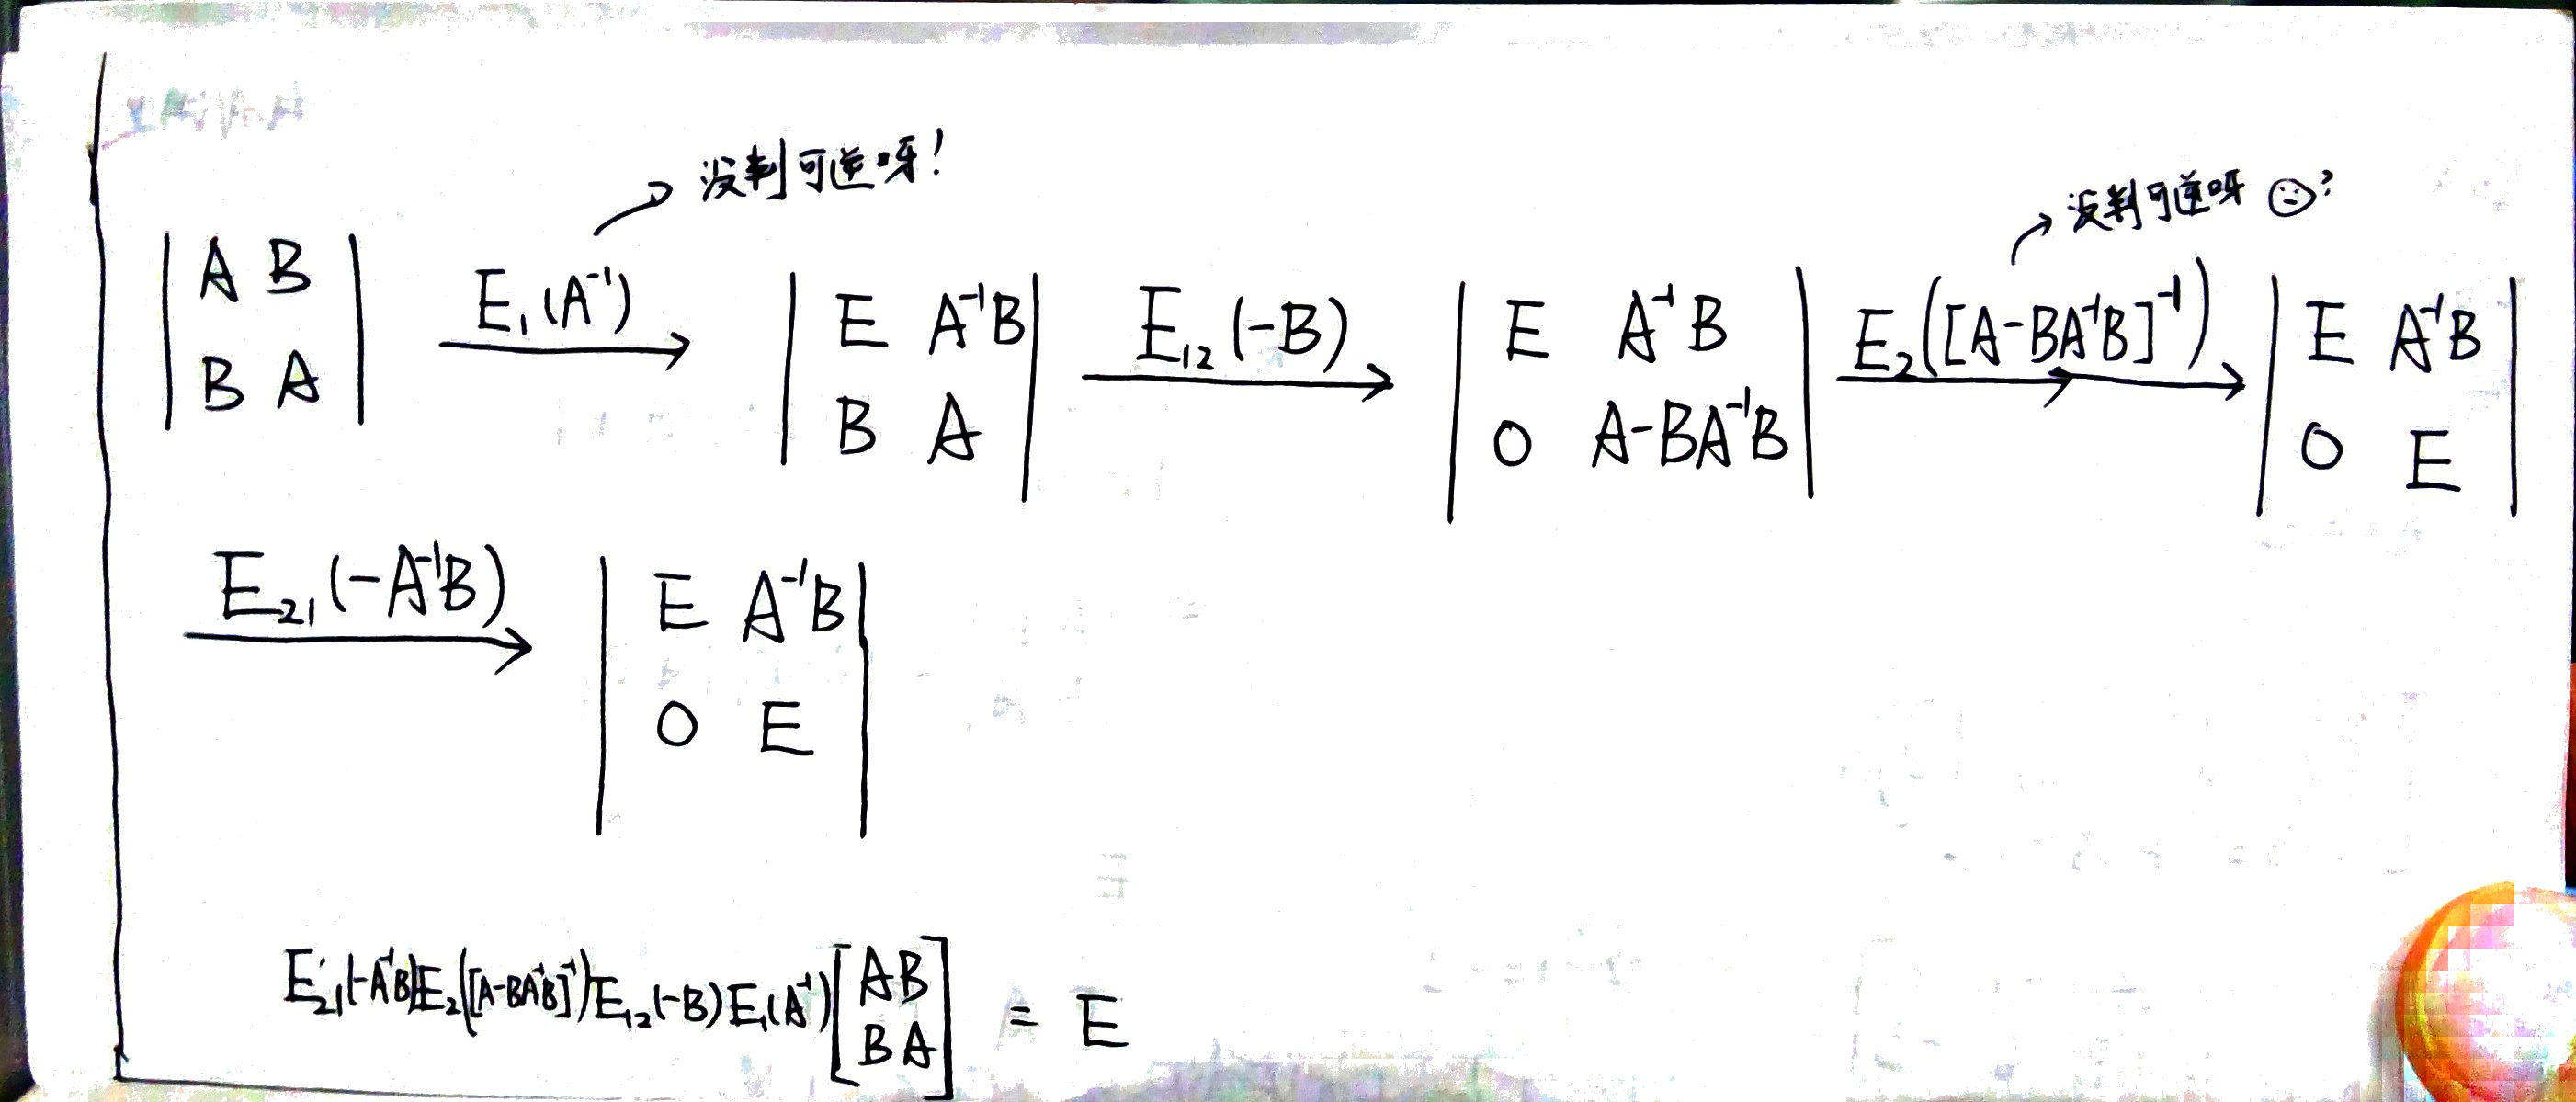 没判可逆呀!
没判可逆呀 ☹?
| A B | E₁(A⁻¹) | E A⁻¹B | E₁₂(-B) | E A⁻¹B | E₂([A-BA⁻¹B]⁻¹) | E A⁻¹B |
| B A | → | B A | → | O A-BA⁻¹B | → | O E |
E₂₁(-A⁻¹B) | E A⁻¹B |
→ | O E |
E₂₁(-A⁻¹B)E₂([A-BA⁻¹B]⁻¹)E₁₂(-B)E₁(A⁻¹)[A B
B A] = E